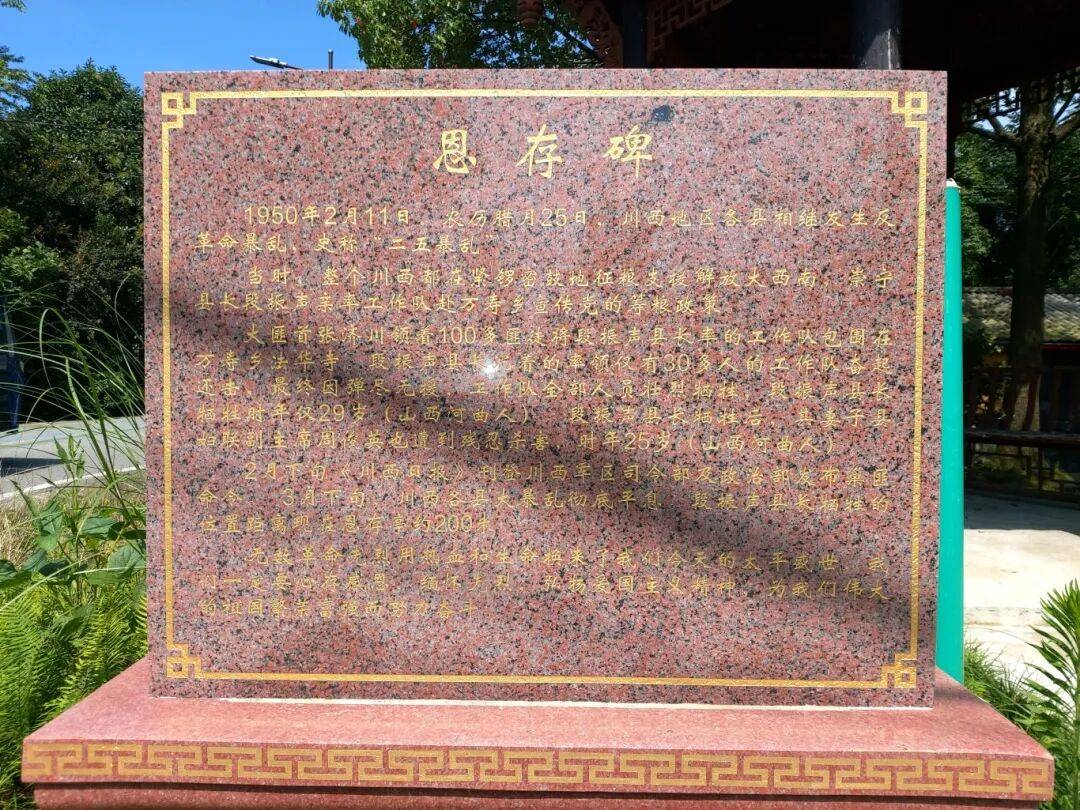 恩存碑
1950年2月11日，农历腊月25日，川西地区各县相继发生反
革命暴乱，史称“二五暴乱”
当时，整个川西都在紧锣密鼓地征粮支援解放大西南，崇宁
县长段振声亲率工作队赴万寿乡宣传党的筹粮政策
大匪首张济川领着100多匪徒将段振声县长率的工作队包围在
万寿乡法华寺，段振声县长 着的率领仅有30多人的工作队奋起
还击，最终因弹尽无援，工作队全部人员壮烈牺牲，段振声县长
牺牲时年仅29岁（山西河曲人），段振声县长牺牲后，其妻子县
妇联副主席周俊英也遭到残忍杀害，时年25岁（山西河曲人）
2月下旬《川西日报》刊登川西军区司令部及政治部发布剿匪
命令，3月下旬，川西各县大暴乱彻底平息，段振声县长牺牲的
位置距离现在恩存亭约200米
无数革命先烈用热血和生命换来了我们今天的太平盛世，我
们一定要心存感恩，缅怀先烈，弘扬爱国主义精神，为我们伟大
的祖国繁荣富强而努力奋斗